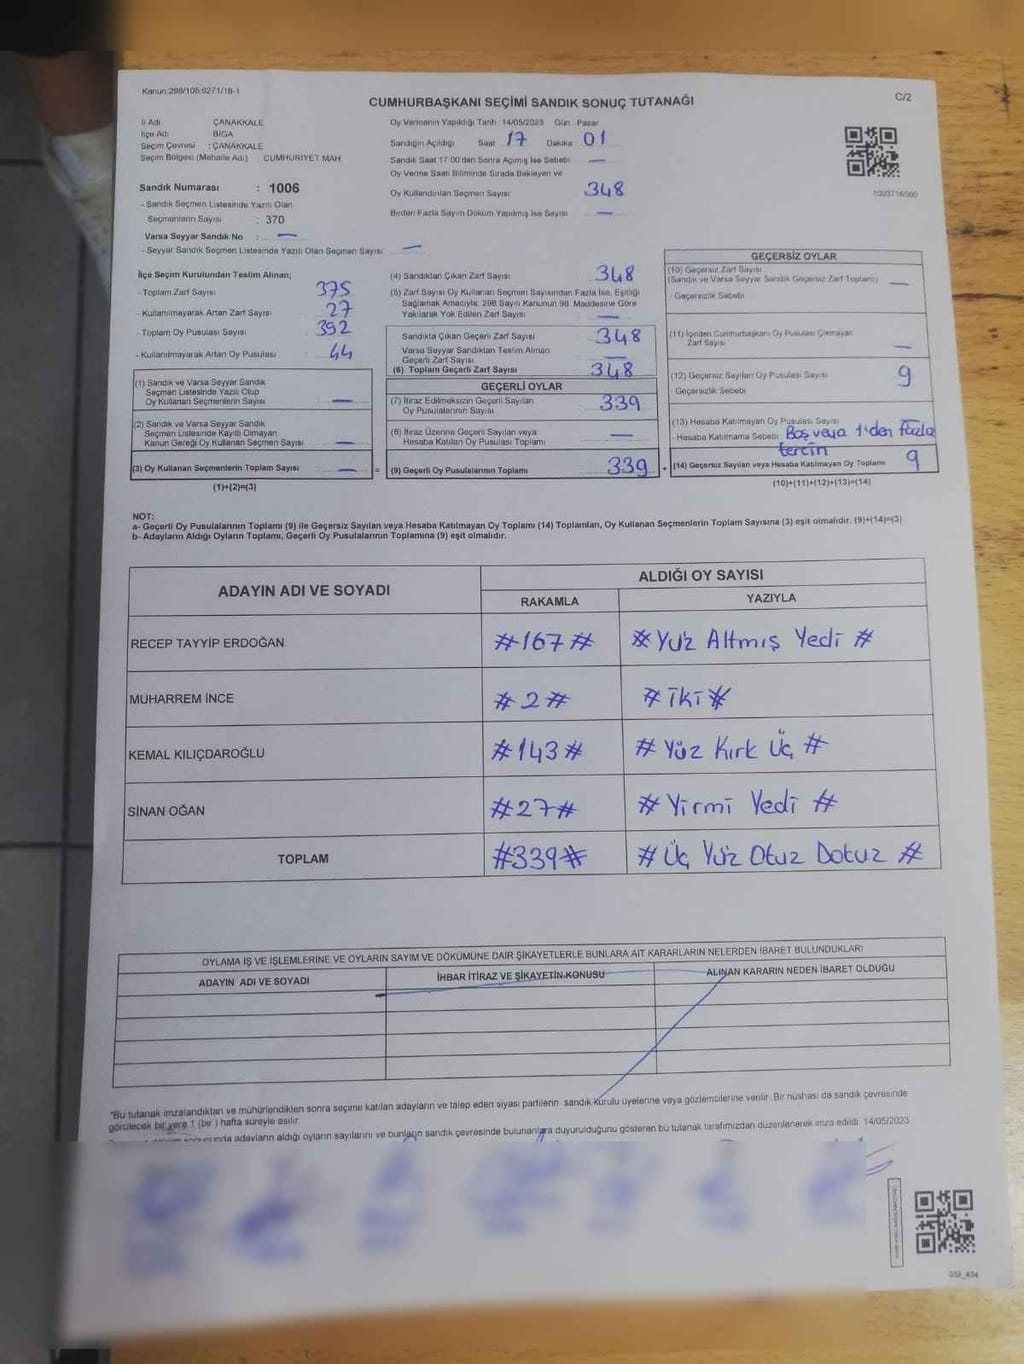 Kanun:298/105;6271/18-1
CUMHURBAŞKANI SEÇİMİ SANDIK SONUÇ TUTANAĞI
C/2
İl Adı ÇANAKKALE
İlçe Adı BİGA
Seçim Çevresi : ÇANAKKALE
Seçim Bölgesi (Mahalle Adı) CUMHURİYET MAH
Oy Vermenin Yapıldığı Tarih 14/05/2023 Gün : Pazar
Sandığın Açıldığı Saat 17 Dakika 01
Sandık Saat 17:00'den Sonra Açılmış İse Sebebi —
Oy Verme Saati Bitiminde Sırada Bekleyen ve
Oy Kullandırılan Seçmen Sayısı 348
Birden Fazla Sayım Döküm Yapılmış İse Sayısı —
1003716560
Sandık Numarası : 1006
- Sandık Seçmen Listesinde Yazılı Olan
Seçmenlerin Sayısı : 370
Varsa Seyyar Sandık No : —
- Seyyar Sandık Seçmen Listesinde Yazılı Olan Seçmen Sayısı: —
İlçe Seçim Kurulundan Teslim Alınan;
- Toplam Zarf Sayısı 375
- Kullanılmayarak Artan Zarf Sayısı 27
- Toplam Oy Pusulası Sayısı 392
- Kullanılmayarak Artan Oy Pusulası 44
(1) Sandık ve Varsa Seyyar Sandık
Seçmen Listesinde Yazılı Olup
Oy Kullanan Seçmenlerin Sayısı —
(2) Sandık ve Varsa Seyyar Sandık
Seçmen Listesinde Kayıtlı Olmayan
Kanun Gereği Oy Kullanan Seçmen Sayısı —
(3) Oy Kullanan Seçmenlerin Toplam Sayısı — =
(1)+(2)=(3)
(4) Sandıktan Çıkan Zarf Sayısı 348
(5) Zarf Sayısı Oy Kullanan Seçmen Sayısından Fazla İse, Eşitliği
Sağlamak Amacıyla, 298 Sayılı Kanunun 98. Maddesine Göre
Yakılarak Yok Edilen Zarf Sayısı —
Sandıkta Çıkan Geçerli Zarf Sayısı 348
Varsa Seyyar Sandıktan Teslim Alınan
Geçerli Zarf Sayısı —
(6) Toplam Geçerli Zarf Sayısı 348
GEÇERLİ OYLAR
(7) İtiraz Edilmeksizin Geçerli Sayılan
Oy Pusulalarının Sayısı 339
(8) İtiraz Üzerine Geçerli Sayılan veya
Hesaba Katılan Oy Pusulası Toplamı —
(9) Geçerli Oy Pusulalarının Toplamı 339 +
GEÇERSİZ OYLAR
(10) Geçersiz Zarf Sayısı
(Sandık ve Varsa Seyyar Sandık Geçersiz Zarf Toplamı) —
- Geçersizlik Sebebi
(11) İçinden Cumhurbaşkanı Oy Pusulası Çıkmayan
Zarf Sayısı —
(12) Geçersiz Sayılan Oy Pusulası Sayısı 9
Geçersizlik Sebebi
(13) Hesaba Katılmayan Oy Pusulası Sayısı
- Hesaba Katılmama Sebebi Boş veya 1'den fazla
tercin
(14) Geçersiz Sayılan veya Hesaba Katılmayan Oy Toplamı 9
(10)+(11)+(12)+(13)=(14)
NOT:
a- Geçerli Oy Pusulalarının Toplamı (9) ile Geçersiz Sayılan veya Hesaba Katılmayan Oy Toplamı (14) Toplamları, Oy Kullanan Seçmenlerin Toplam Sayısına (3) eşit olmalıdır. (9)+(14)=(3)
b- Adayların Aldığı Oyların Toplamı, Geçerli Oy Pusulalarının Toplamına (9) eşit olmalıdır.
ADAYIN ADI VE SOYADI
ALDIĞI OY SAYISI
RAKAMLA YAZIYLA
RECEP TAYYİP ERDOĞAN #167# #Yüz Altmış Yedi #
MUHARREM İNCE #2# #iki#
KEMAL KILIÇDAROĞLU #143# # Yüz Kırk Üç #
SİNAN OĞAN #27# # Yirmi Yedi #
TOPLAM #339# # Üç Yüz Otuz Dokuz #
OYLAMA İŞ VE İŞLEMLERİNE VE OYLARIN SAYIM VE DÖKÜMÜNE DAİR ŞİKAYETLERLE BUNLARA AİT KARARLARIN NELERDEN İBARET BULUNDUKLARI
ADAYIN ADI VE SOYADI İHBAR İTİRAZ VE ŞİKAYETİN KONUSU ALINAN KARARIN NEDEN İBARET OLDUĞU
*Bu tutanak imzalandıktan ve mühürlendikten sonra seçime katılan adayların ve talep eden siyasi partilerin sandık kurulu üyelerine veya gözlemcilerine verilir. Bir nüshası da sandık çevresinde
görülecek bir yere 1 (bir ) hafta süreyle asılır.
adayların aldığı oyların sayılarını ve bunların sandık çevresinde bulunanlara duyurulduğunu gösteren bu tutanak tarafımızdan düzenlenerek imza edildi. 14/05/2023